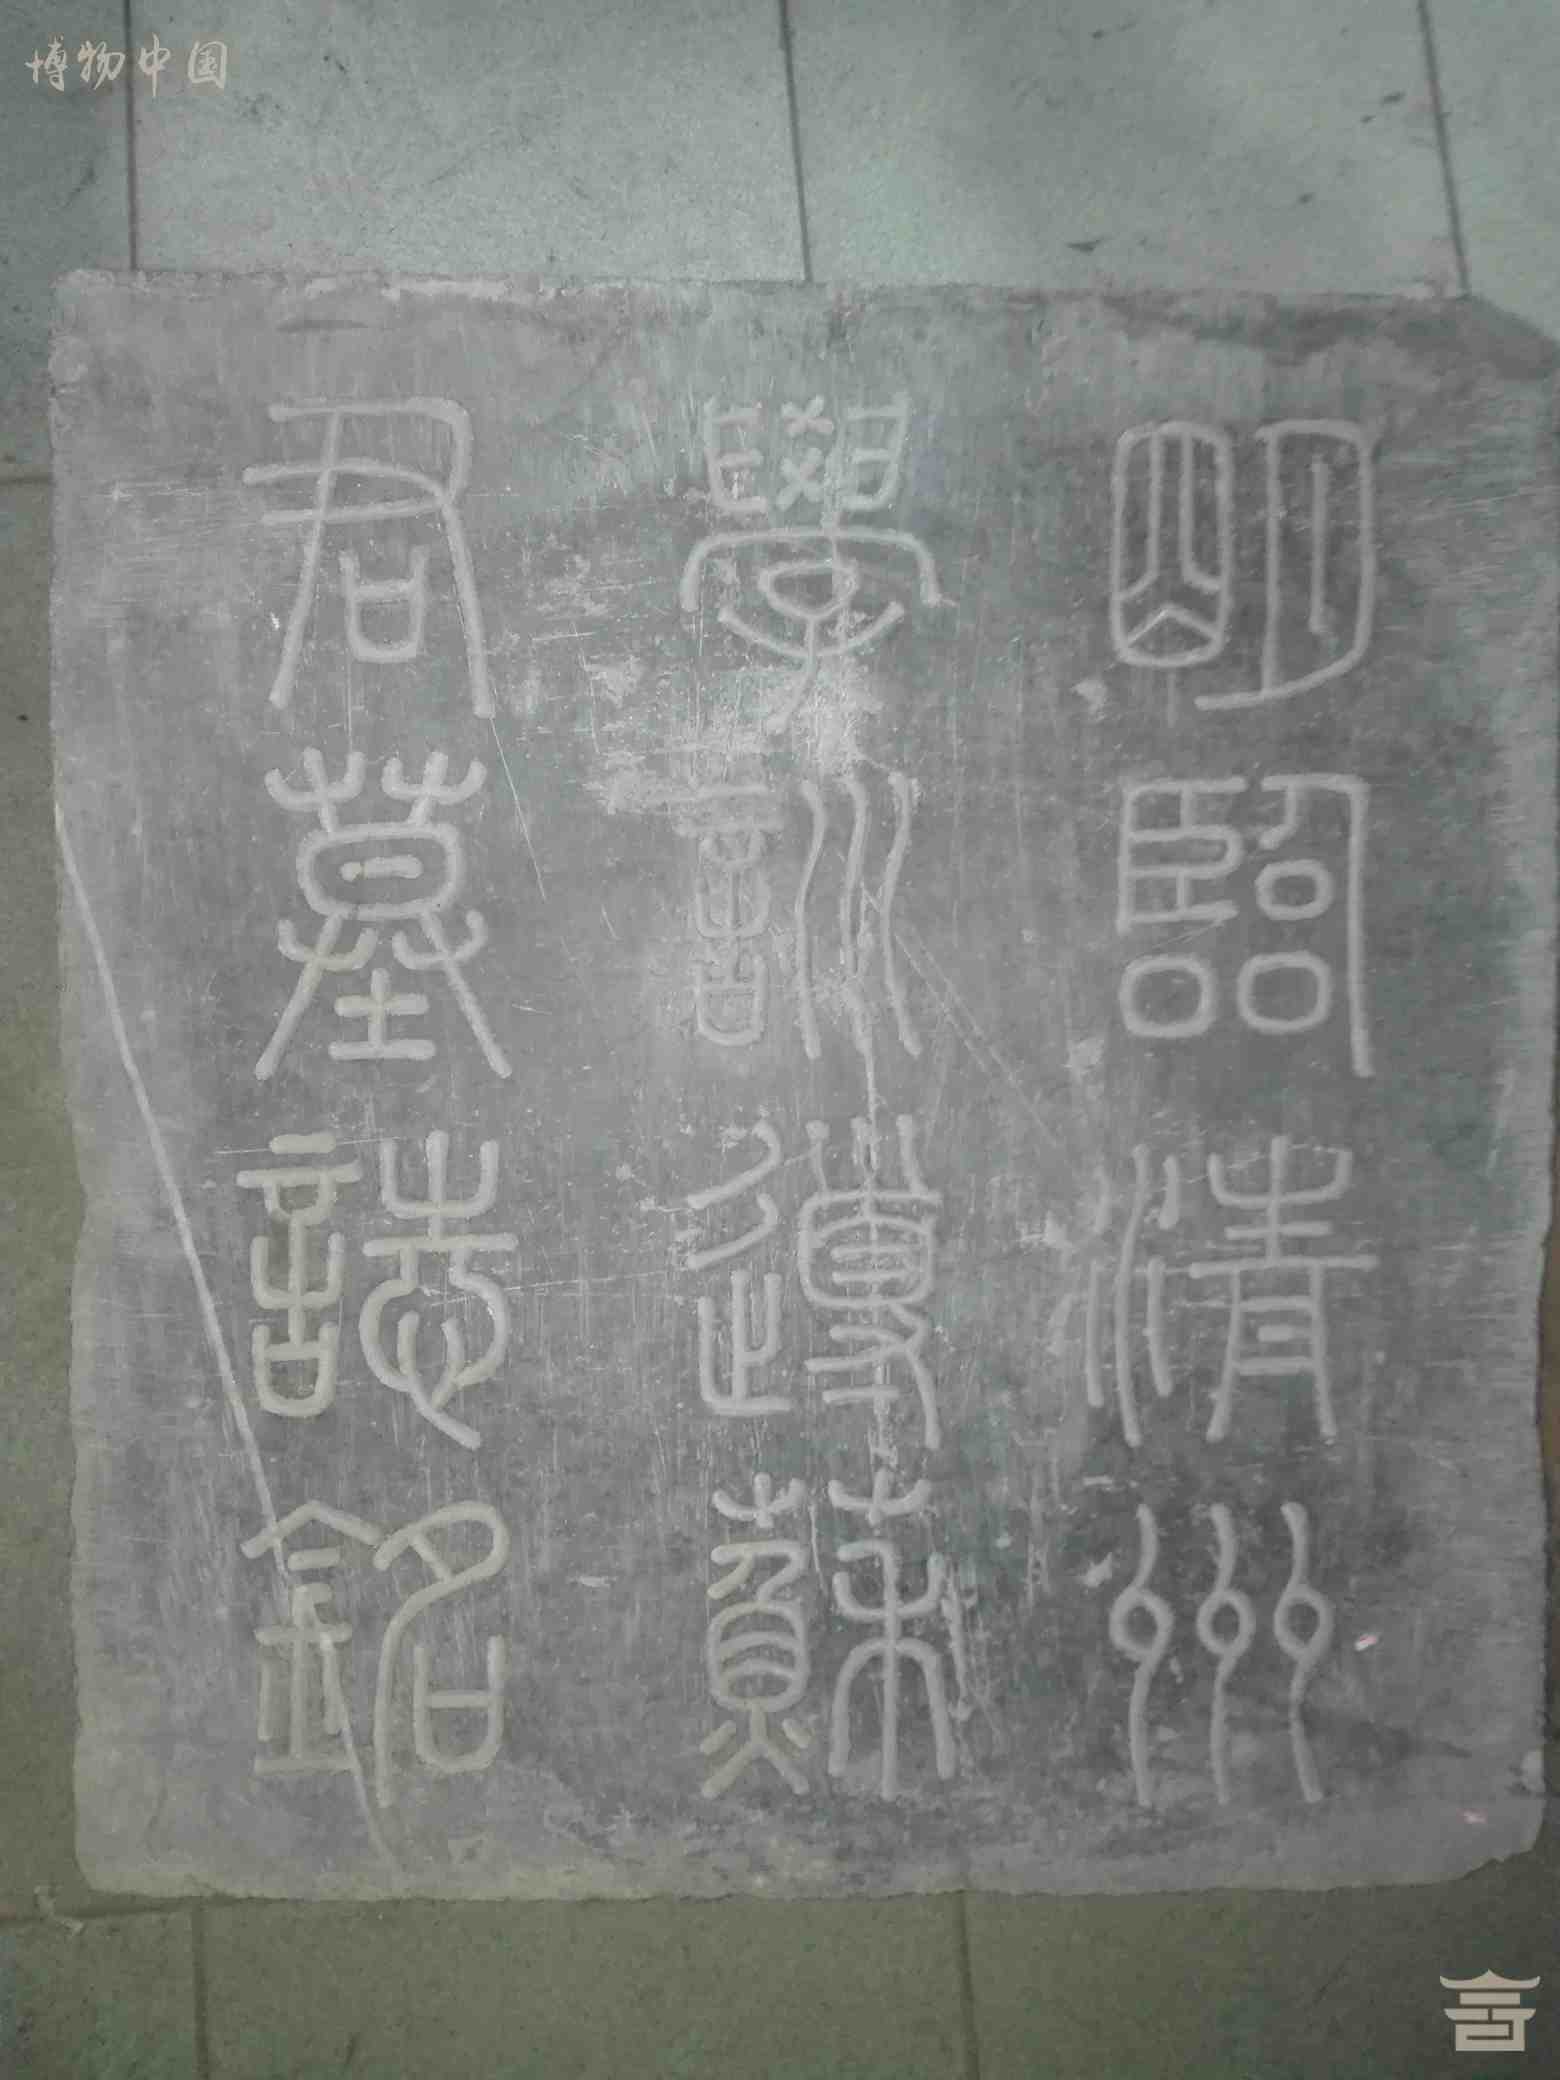 博物中国
明臨清州
學訓導蘇
君墓誌銘